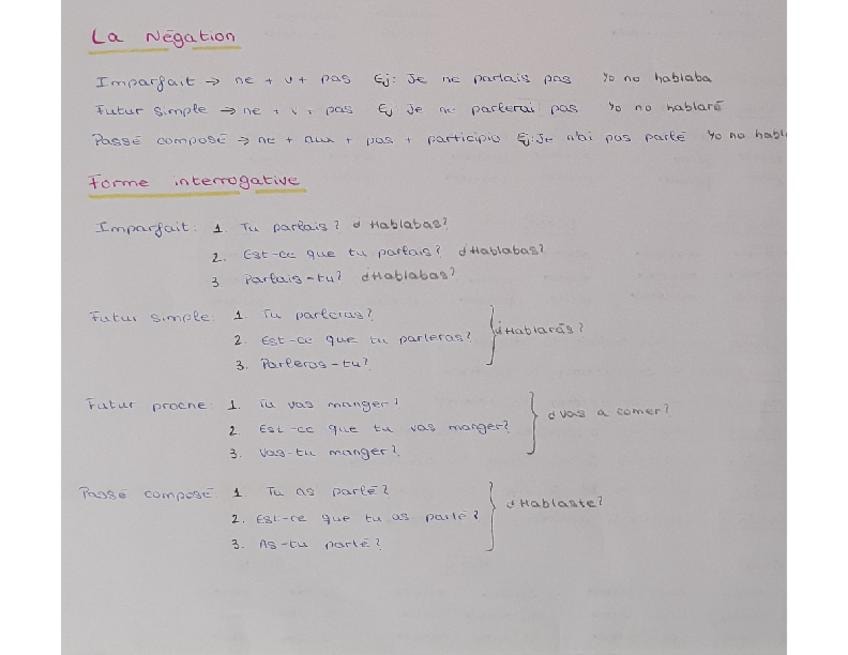 La Négation
Imparfait → ne + v + pas Ej: Je ne parlais pas Yo no hablaba
Futur simple → ne + v + pas Ej Je ne parlerai pas Yo no hablaré
Passé composé → ne + aux + pas + participio Ej: Je n'ai pas parlé Yo no
Forme interrogative
Imparfait: 1. Tu parlais? ¿Hablabas?
2. Est-ce que tu parlais? ¿Hablabas?
3 Parlais-tu? ¿Hablabas?
Futur simple: 1. Tu parleras?
2. Est-ce que tu parleras? ¿Hablarás?
3. Parleras-tu?
Futur proche: 1. Tu vas manger?
2. Est-ce que tu vas manger? ¿Vas a comer?
3. Vas-tu manger?
Passé composé: 1 Tu as parlé?
2. Est-ce que tu as parlé? ¿Hablaste?
3. As-tu parlé?